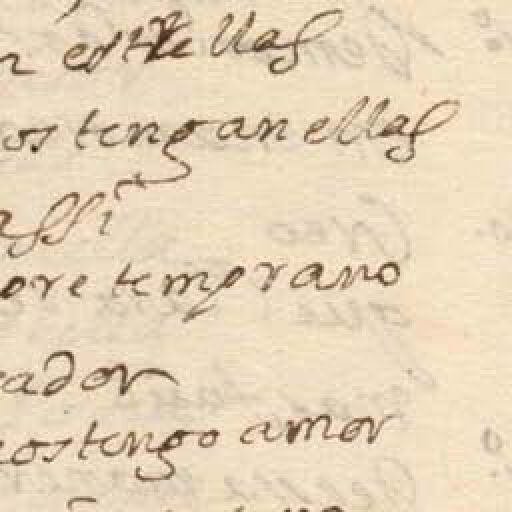 n estrellas
os tengan ellas
assi
ore temprano
ador
os tengo amor